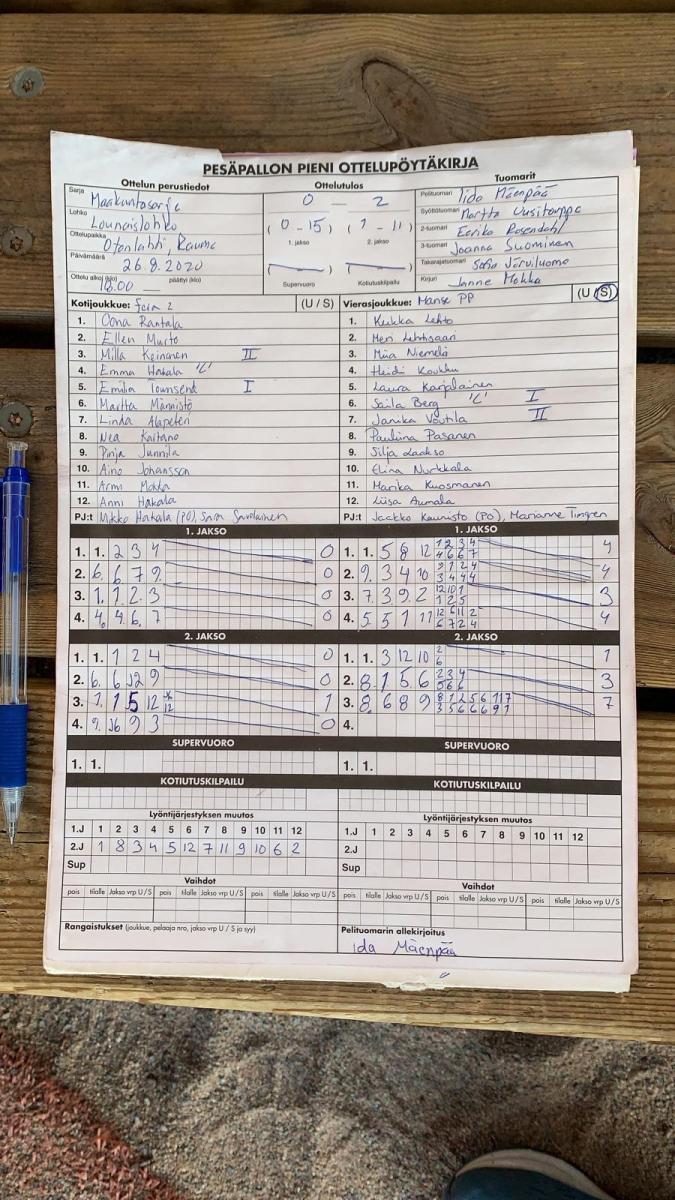 PESÄPALLON PIENI OTTELUPÖYTÄKIRJA
Ottelun perustiedot
Sarja Maakuntasarja
Lohko Lounaislohko
Ottelupaikka Otanlahti, Rauma
Päivämäärä 26.8.2020
Ottelu alkoi (klo) 18.00 — päättyi (klo)
Ottelutulos
0 — 2
(0 - 15) (1 - 11)
1. jakso 2. jakso
Supervuoro Kotiutuskilpailu
Tuomarit
Pelituomari Iida Mäenpää
Syöttötuomari Martta Uusitorppa
2-tuomari Eerika Rosendahl
3-tuomari Joanna Suominen
Takarajatuomari Sofia Järviluoma
Kirjuri Janne Mokka
Kotijoukkue: Fera 2 (U / S)
1. Oona Rantala
2. Ellen Murto
3. Milla Keinänen II
4. Emma Hakala "C"
5. Emilia Townsend I
6. Martta Männistö
7. Linda Alapeteri
8. Nea Kaitano
9. Pinja Junnila
10. Aino Johansson
11. Armi Mokka
12. Anni Hakala
PJ:t Mikko Hakala (PO), Sara Savolainen
Vierasjoukkue: Manse PP (U / S)
1. Kukka Lehto
2. Meri Lehtisaari
3. Miia Niemelä
4. Heidi Koukku
5. Laura Karjalainen
6. Saila Berg "C" I
7. Janika Voutila II
8. Pauliina Pasanen
9. Silja Laakso
10. Elina Nurkkala
11. Marika Kuosmanen
12. Liisa Aumala
PJ:t Jaakko Kaunisto (PO), Marianne
1. JAKSO
1. 1. 2 3 4 0
2. 6. 6 7 9. 0
3. 1. 1 2. 3 0
4. 4. 4 6. 7 0
1. JAKSO
1. 1. 5 8 12 1 2 3 4 4
4 6 6 7
2. 9. 3 4 10 9 1 2 4 4
3 4 4 4
3. 7. 3 9 2 12 10 1 3
1 2 5
4. 5 5 1 11 12 6 11 2 4
6 7 2 4
2. JAKSO
1. 1. 1 2 4 0
2. 6. 6 12 9 0
3. 1. 1 5 12 1
12
4. 9. 6 9 3 0
2. JAKSO
1. 1. 3 12 10 2 1
6
2. 8. 1 5 6 2 3 4 3
5 6 6
3. 8. 6 8 9 8 1 2 5 6 11 7 7
3 5 6 6 6 9 1
4.
SUPERVUORO
1. 1.
SUPERVUORO
1. 1.
KOTIUTUSKILPAILU
KOTIUTUSKILPAILU
Lyöntijärjestyksen muutos
1.J 1 2 3 4 5 6 7 8 9 10 11 12
2.J 1 8 3 4 5 12 7 11 9 10 6 2
Sup
Lyöntijärjestyksen muutos
1.J 1 2 3 4 5 6 7 8 9 10 11 12
2.J
Sup
Vaihdot
pois tilalle Jakso vrp U/S pois tilalle Jakso vrp U/S pois tilalle Jakso vrp U/S
Vaihdot
pois tilalle Jakso vrp U/S pois tilalle Jakso vrp U/S pois tilalle Jakso vrp U/S
Rangaistukset (joukkue, pelaaja nro, jakso vrp U / S ja syy)
Pelituomarin allekirjoitus
Iida Mäenpää